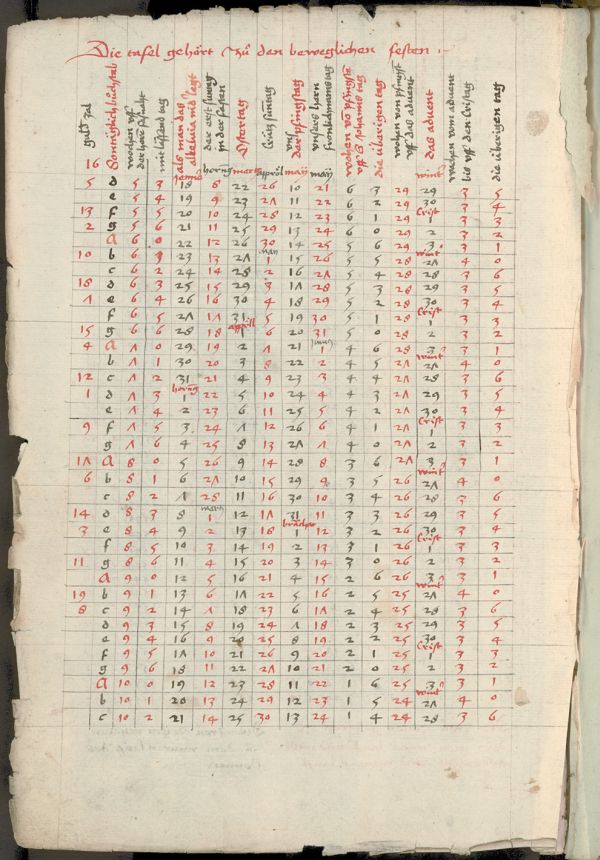 Die tafel gehört Zů den beweglichen festen
guldi zal
Sontüglich bůchstab
wochen uff der here faßnaht
mit sampt tag
als man das alleluia nid legt
der erst sunntag in der fasten
Ostertag
Crütz sunntag
der pfingstag
unsers hern fronlichnams tag
wochen vo pfingste uff S Johanns tag
die überigen tag
wochen von pfingst uff das aduent
das aduent
wuchen vom aduent bis uff den Cristag
die überigen tag
16 hornūg mertz apprel may may wint
5 d 5 3 18 8 22 26 10 21 6 3 29 29 3 5
e 5 4 19 9 23 27 11 22 6 2 29 30 3 4
Crist
13 f 5 5 20 10 24 28 12 23 6 1 29 1 3 3
2 g 5 6 21 11 25 29 13 24 6 0 29 2 3 2
A 6 0 22 12 26 30 14 25 5 6 29 3 3 1
may wint
10 b 6 1 23 13 27 1 15 26 5 5 28 27 4 0
c 6 2 24 14 28 2 16 27 5 4 28 28 3 6
18 d 6 3 25 15 29 3 17 28 5 3 28 29 3 5
7 e 6 4 26 16 30 4 18 29 5 2 28 30 3 4
Crist
f 6 5 27 17 31 5 19 30 5 1 28 1 3 3
apprill
15 g 6 6 28 18 1 6 20 31 5 0 28 2 3 2
4 A 7 0 29 19 2 7 21 1 4 6 28 3 3 1
wint
b 7 1 30 20 3 8 22 2 4 5 27 27 4 0
12 c 7 2 31 21 4 9 23 3 4 4 27 28 3 6
hornūg
1 d 7 3 1 22 5 10 24 4 4 3 27 29 3 5
e 7 4 2 23 6 11 25 5 4 2 27 30 3 4
Crist
9 f 7 5 3 24 7 12 26 6 4 1 27 1 3 3
g 7 6 4 25 8 13 27 7 4 0 27 2 3 2
17 A 8 0 5 26 9 14 28 8 3 6 27 3 3 1
wint
6 b 8 1 6 27 10 15 29 9 3 5 26 27 4 0
c 8 2 7 28 11 16 30 10 3 4 26 28 3 6
14 d 8 3 8 1 12 17 31 11 3 3 26 29 3 5
brachet
3 e 8 4 9 2 13 18 1 12 3 2 26 30 3 4
Crist
f 8 5 10 3 14 19 2 13 3 1 26 1 3 3
11 g 8 6 11 4 15 20 3 14 3 0 26 2 3 2
A 9 0 12 5 16 21 4 15 2 6 26 3 3 1
wint
19 b 9 1 13 6 17 22 5 16 2 5 25 27 4 0
8 c 9 2 14 7 18 23 6 17 2 4 25 28 3 6
d 9 3 15 8 19 24 7 18 2 3 25 29 3 5
e 9 4 16 9 20 25 8 19 2 2 25 30 3 4
Crist
f 9 5 17 10 21 26 9 20 2 1 25 1 3 3
g 9 6 18 11 22 27 10 21 2 0 25 2 3 2
A 10 0 19 12 23 28 11 22 1 6 25 3 3 1
wint
b 10 1 20 13 24 29 12 23 1 5 24 27 4 0
c 10 2 21 14 25 30 13 24 1 4 24 28 3 6